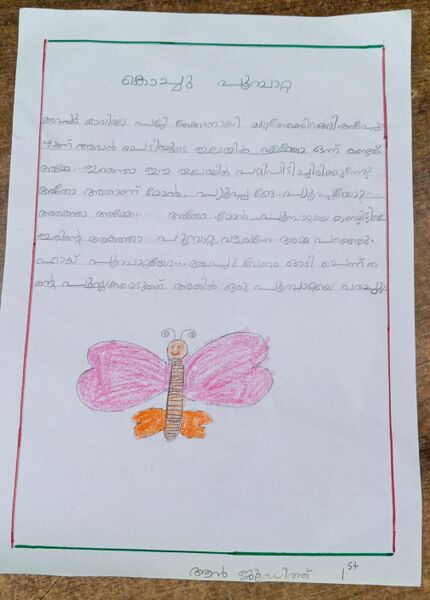 കൊച്ചു പൂമ്പാറ്റ
അപ്പു രാവിലെ പല്ല് തേക്കാനായി മുറ്റത്തേക്കിറങ്ങി. അപ്പോ
ഴാണ് അവൻ ചെടിയുടെ ഇലയിൽ എന്തോ ഒന്ന് കണ്ടത്.
അമ്മേ... ഇതെന്താ ഈ ഇലയിൽ പറ്റിപിടിച്ചിരിക്കുന്നേ?
അതോ അതാണ് മോൻ പ്യൂപ്പ ങ്ങേ പ്യൂപ്പയോ?
അതെന്താ അമ്മേ... അതോ മോൻ പൂമ്പാറ്റയെ കണ്ടിട്ടില്ലേ
ഇതിന്റെ അകത്താ പൂമ്പാറ്റ വളരുന്നേ അമ്മ പറഞ്ഞു.
ഹായ് പൂമ്പാറ്റയോ... അപ്പു വേഗം ഓടി ചെന്ന് ത
ന്റെ പുസ്തകമെടുത്ത് അതിൽ ഒരു പൂമ്പാറ്റയെ വരച്ചു.
ആൻ ജൂഡിത്ത് 1st